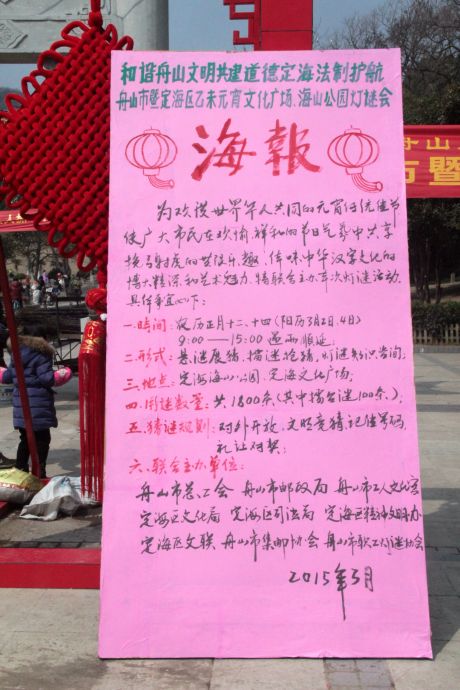 和谐舟山文明共建道德定海法制护航
舟山市暨定海区乙未元宵文化广场、海山公园灯谜会
海報
为欢度世界华人共同的元宵传统佳节
使广大市民在欢愉祥和的节日气氛中共享
猜射度的世俗乐趣,体味中华汉字文化的
博大精深和艺术魅力,特联合主办本次灯谜活动,
具体事宜如下:
一.時间:农历正月十二、十四(阳历3月2日、4日)
9:00—15:00遇雨顺延;
二.形式:悬谜展猜、擂谜抢猜、灯谜知识咨询;
三.地点:定海海山公园、定海文化广场;
四.用谜数量:共1800条(其中擂台谜100条);
五.猜谜规则:对外开放、文明竞猜、记住号码
礼让对奖;
六.联合主办单位:
舟山市总工会 舟山市邮政局 舟山市工人文化宫
定海区文化局 定海区司法局 定海区精神文明办
定海区文联、舟山市集邮协会 舟山市职工灯谜协会
2015年3月
舟山
市暨